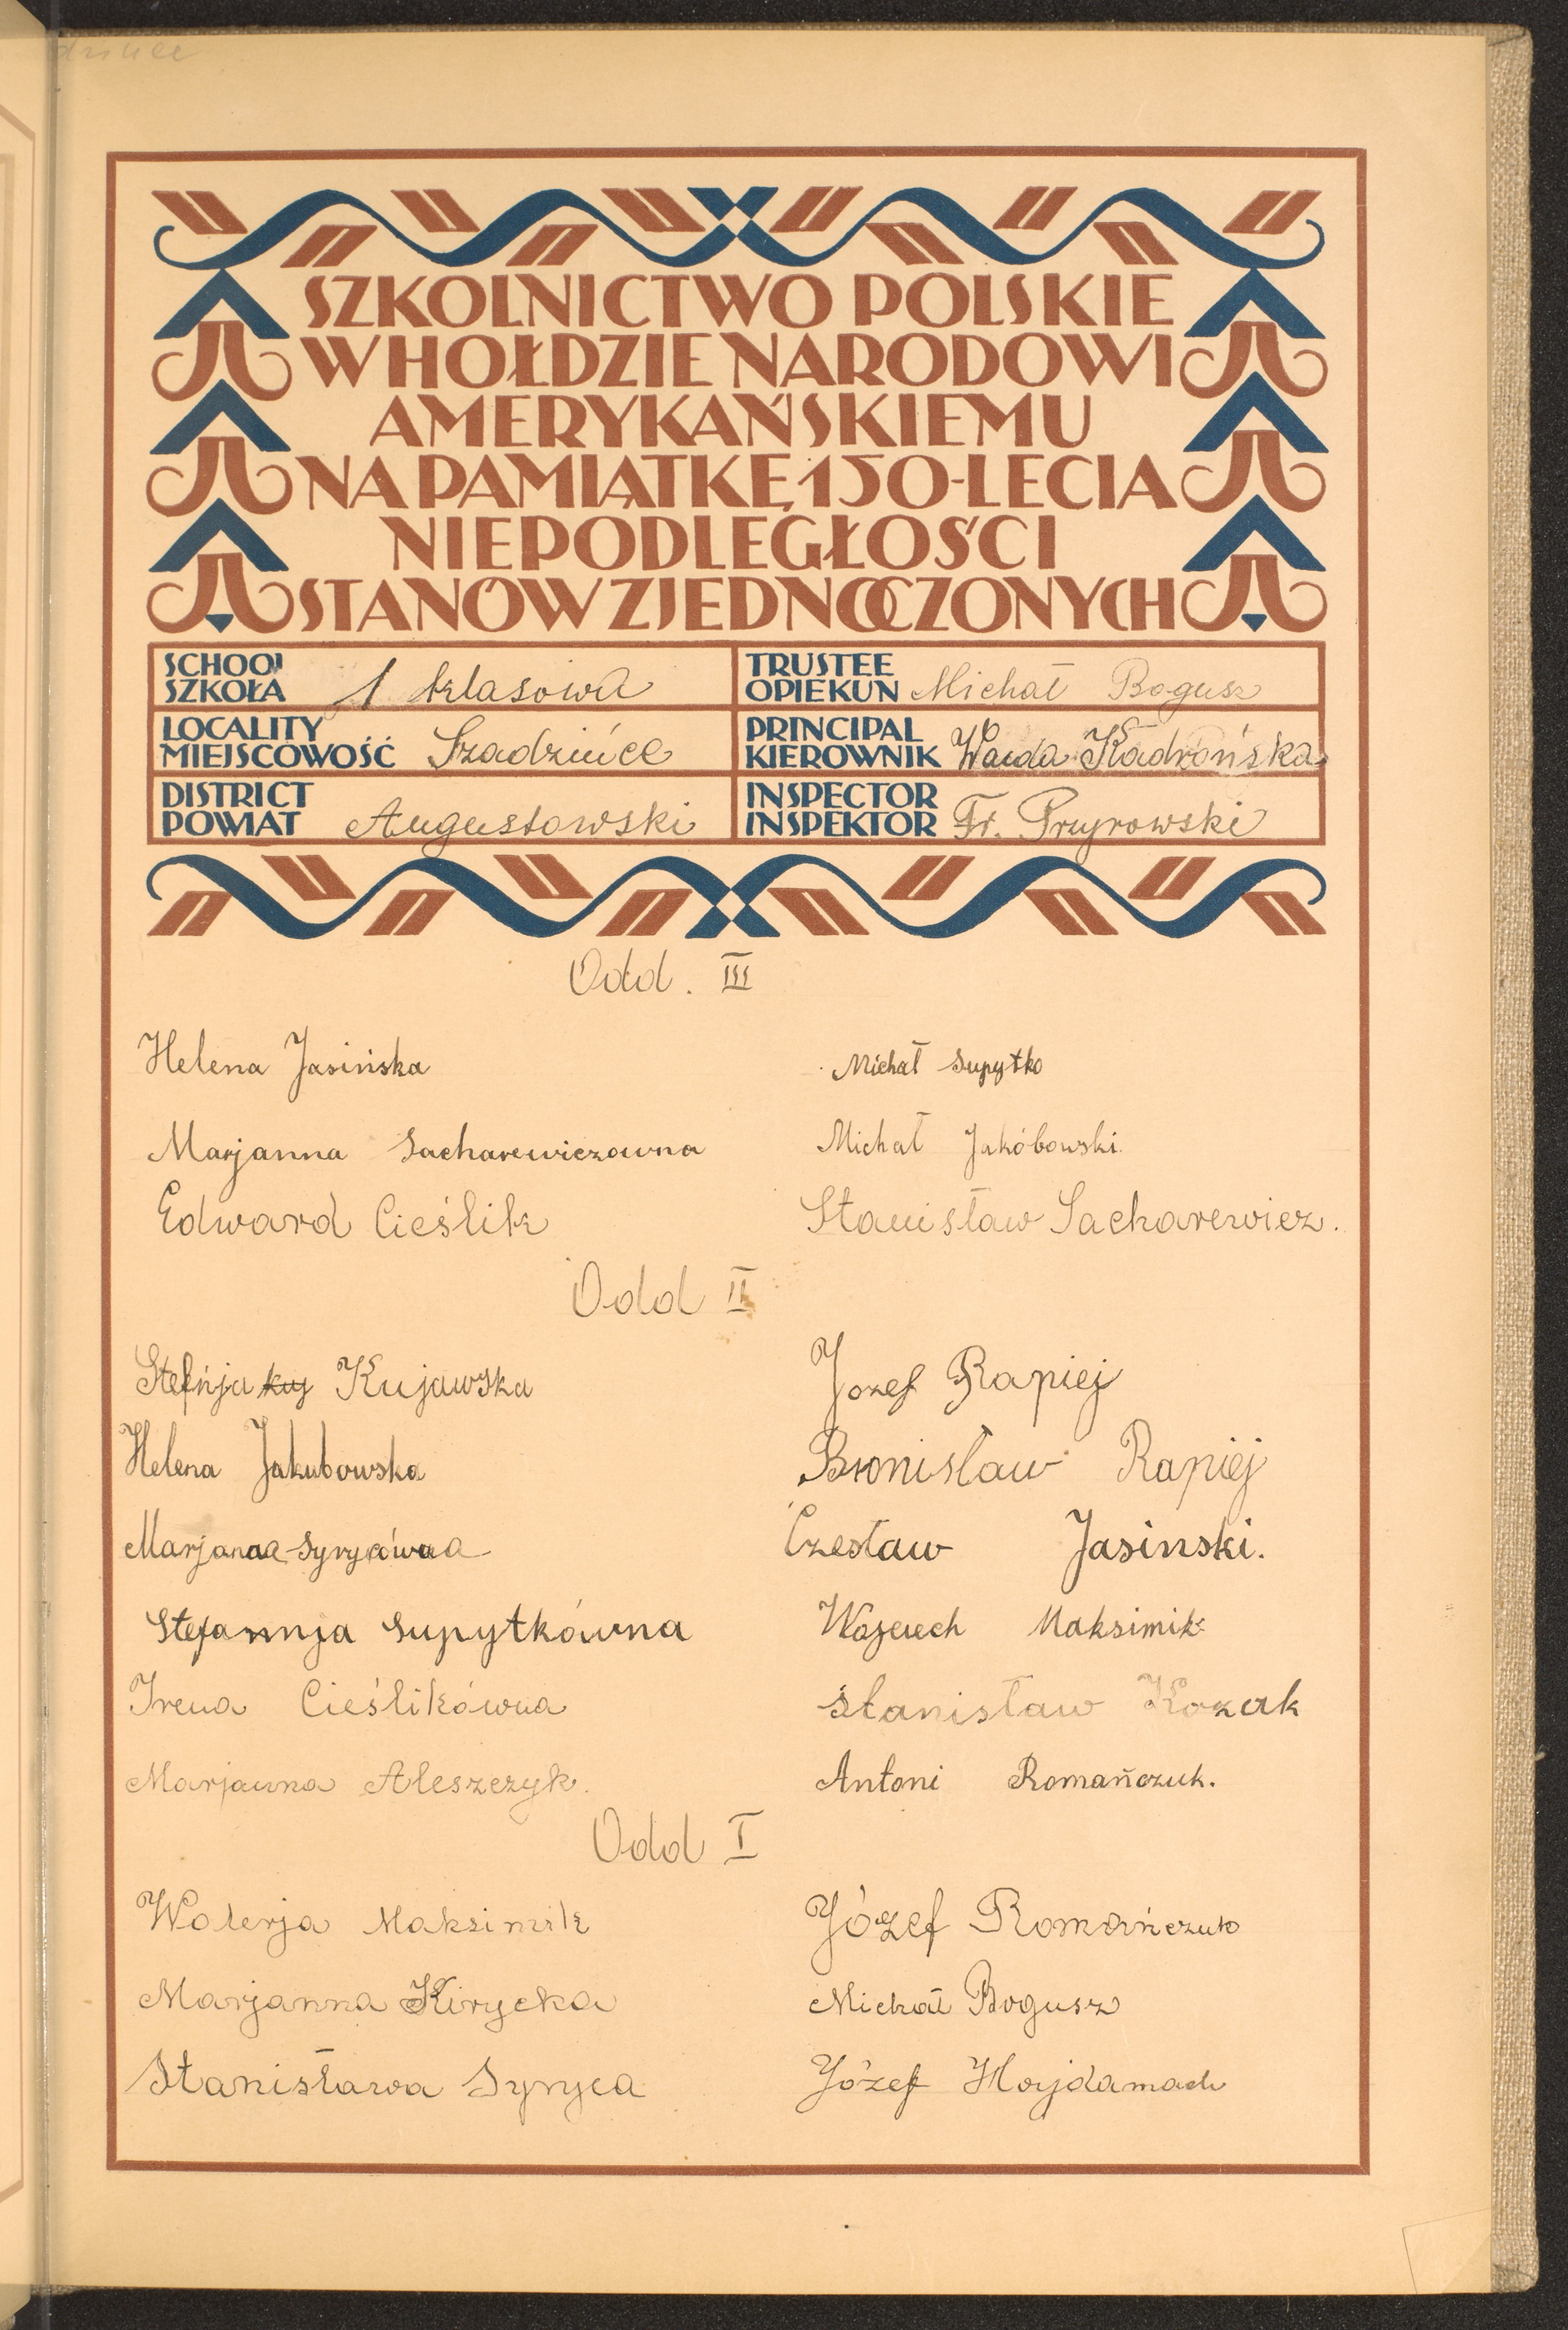 SZKOLNICTWO POLSKIE
W HOŁDZIE NARODOWI
AMERYKAŃSKIEMU
NA PAMIĄTKĘ 150-LECIA
NIEPODLEGŁOŚCI
STANÓW ZJEDNOCZONYCH
SCHOOL
SZKOŁA 1 klasowa
TRUSTEE
OPIEKUN Michał Bogusz
LOCALITY
MIEJSCOWOŚĆ Szadzińce
PRINCIPAL
KIEROWNIK Wanda Kadrońska
DISTRICT
POWIAT Augustowski
INSPECTOR
INSPEKTOR Fr. Przyrowski
Odd. III
Helena Jasińska
Michał Supytko
Marjanna Sacharewiczowna
Michał Jakóbowski.
Edward Cieślik
Stanisław Sacharewicz.
Odd II
Stefńja kuj Kujawska
Jozef Rapiej
Helena Jakubowska
Bronisław Rapiej
Marjanna Syrycówna
Czesław Jasinski.
Stefannja Supytkówna
Wojciech Maksimik
Irena Cieślikówna
Stanisław Kozak
Marjanna Aleszczyk.
Antoni Romańczuk.
Odd I
Walerja Maksimik
Józef Romańczuk
Marjanna Kirycka
Michał Bogusz
Stanisława Syryca
Józef Hojdamach